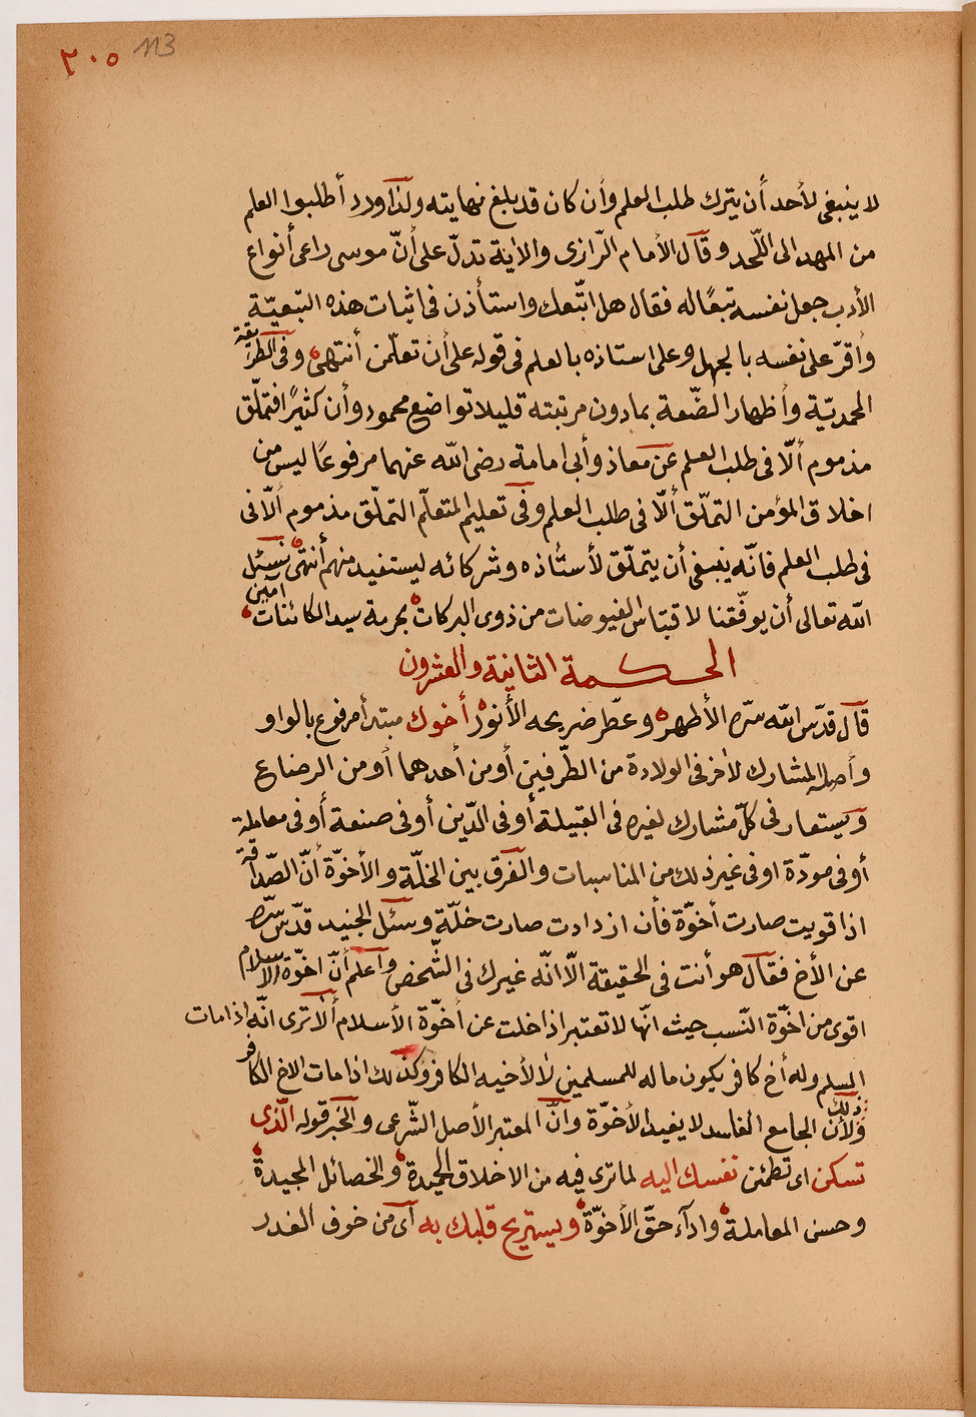 ٢٠٥ 113
لا ينبغى لأحد أن يترك طلب العلم وأن كان قد بلغ نهايته ولذا ورد أطلبوا العلم
من المهد الى اللّحد وقال الأمام الرّازى والاٰية تدلّ على أنّ موسى راعى أنواع
الأدب جعل نفسه تبعًا له فقال هل اتّبعك واستأذن فى اثبات هذه التبعيّة
وأقرّ على نفسه بالجهل وعلى استاذه بالعلم فى قوله على أن تعلّمن أنتهى وفى الطريقة
المحمديّة وأظهار الضّعة بما دون مرتبته قليلا تواضع محمود وأن كثيرًا فتملّق
مذموم ألّا فى طلب العلم عن معاذ وأبى امامة رضى الله عنهما مرفوعًا ليس من
اخلاق المؤمن التملّق ألّا فى طلب العلم وفى تعليم المتعلّم التملّق مذموم ألّا فى
فى طلب العلم فانّه ينبغى أن يتملّق لأستأذه وشركائه ليستفيد منهم أنتهى نسئل
الله تعالى أن يوفّقنا لاقتباس الفيوضات من ذوى البركات بحرمة سيد الكائنات آمين
الحكمة الثانية والعشرون
قال قدّس الله سرّه الأطهر وعطّر ضريحه الأنور أخوك مبتدأ مرفوع بالواو
وأصله المشارك لاٰخر فى الولادة من الطّرفين أو من أحدهما أو من الرضاع
ويستعار فى كلّ مشارك لغيره فى القبيلة أو فى الدّين أو فى صنعة أو فى معاملة
أو فى مودّة او فى غير ذلك من المناسبات والفرق بين الخلّة والأخوّة أنّ الصّداقة
اذا قويت صارت أخوّة فأن ازدادت صارت خلّة وسئل الجنيد قدّس سّره
عن الأخ فقال هو أنت فى الحقيقة الّا انّه غيرك فى الشّخص وأعلم أنّ اخوّة الاسلام
اقوى من اخوّة النّسب حيث انّها لا تعتبر اذا خلت عن أخوّة الأسلام ألا ترى انّه اذا مات
المسلم وله أخ كافر يكون ماله للمسلمين لا لأخيه الكافر وكذلك اذا مات الاخ الكافر
وذلك لأنّ الجامع الفاسد لا يفيد الأخوّة وأنّ المعتبر الأصل الشّرعى والخبر قوله الّذى
تسكن اى تطمئن نفسك اليه لما ترى فيه من الاخلاق الحميدة والخصائل المجيدة
وحسن المعاملة وادآء حقّ الأخوّة ويستريح قلبك به أى من خوف الغدر